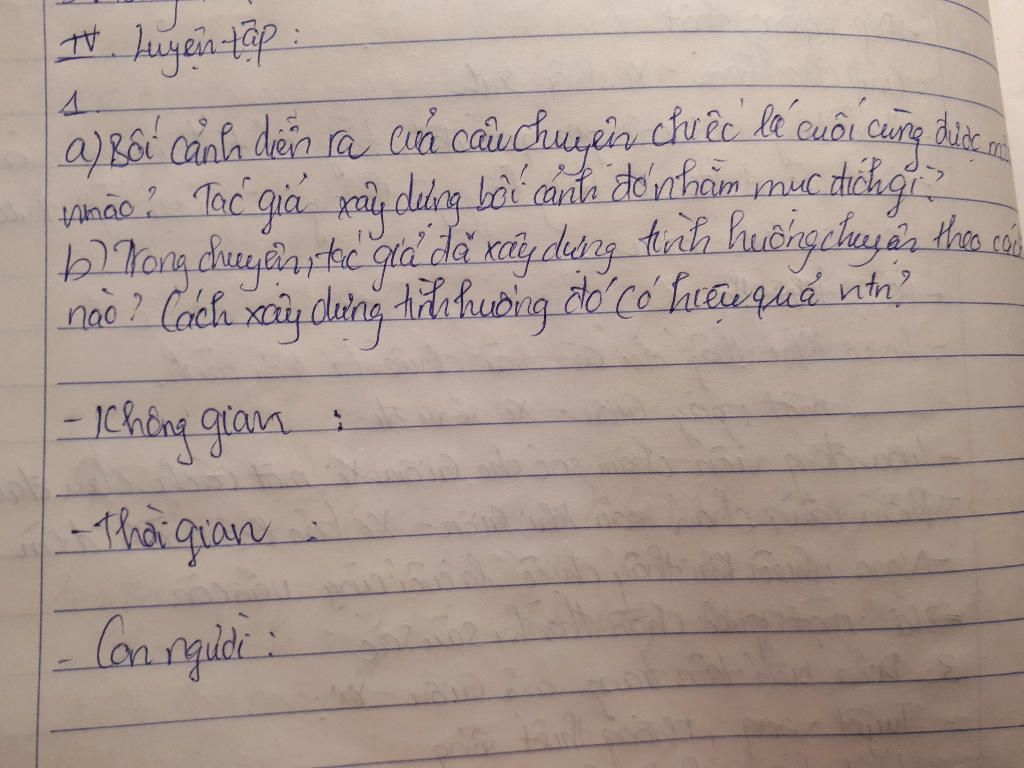 IV. Luyện tập :
1.
a) Bối cảnh diễn ra của câu chuyện chiếc lá cuối cùng được
nào? Tác giả xây dựng bối cảnh đó nhằm mục đích gì?
b) Trong chuyện, tác giả đã xây dựng tình huống chuyện theo các
nào? Cách xây dựng tình huống đó có hiệu quả ntn?
- Không gian :
- Thời gian :
- Con người :